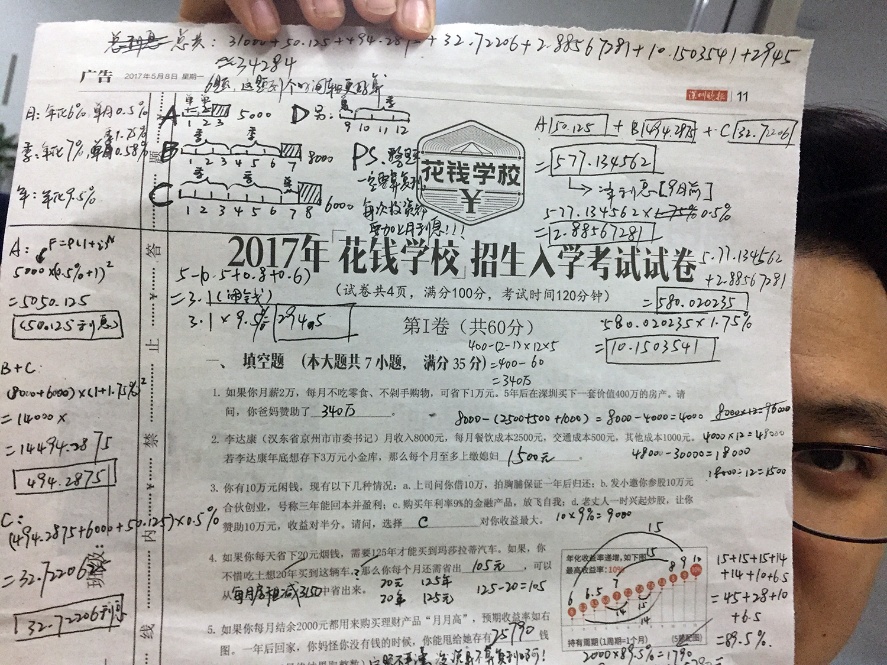 总共: 31000+50.125+494.2875+32.72206+2.88567281+10.1503541+2945
≈34284
广告 2017年5月8日 星期一
深圳晚报 11
月:年化6% 单月0.5%
季1.75%
季:年化7% 单月0.58%
年:年化9.5%
A 1 2 3 5000
D 9 10 11 12
B 1 2 3 4 5 6 7 8000
C 1 2 3 4 5 6 7 8 6000
PS.
花钱学校
¥
A 50.125 + B 494.2875 + C 32.72206
= 577.134562
→净利息[9月前]
577.134562×0.5%
= 2.88567281
577.134562
+2.88567281
= 580.020235
580.020235×1.75%
= 10.1503541
A:
5000×(0.5%+1)²
=5050.125
(50.125利息)
5-(0.5+0.8+0.6)
=3.1(闲钱)
3.1×9.5% 294.5
2017年「花钱学校」招生入学考试试卷
(试卷共4页,满分100分,考试时间120分钟)
第I卷(共60分)
400-(2-1)×12×5
=400-60
=340万
一、填空题 (本大题共7小题, 满分35分)
1. 如果你月薪2万,每月不吃零食、不剁手购物,可省下1万元。5年后在深圳买下一套价值400万的房产。请
问,你爸妈赞助了 340万 。
8000-(2500+500+1000)=8000-4000=4000
8000×12=96000
2. 李达康(汉东省京州市市委书记)月收入8000元,每月餐饮成本2500元,交通成本500元,其他成本1000元,
若李达康年底想存下3万元小金库,那么每个月至多上缴媳妇 1500元 。
4000×12=48000
48000-30000=18000
18000÷12=1500
3. 你有10万元闲钱,现有以下几种情况:a.上司问你借10万,拍胸脯保证一年后归还;b.发小邀你参股10万元
合伙创业,号称三年能回本并盈利;c.购买年利率9%的金融产品,放飞自我;d.老丈人一时兴起炒股,让你
赞助10万元,收益对半分。请问,选择 C 对你收益最大。
10×9%=9000
4. 如果你每天省下20元烟钱,需要125年才能买到玛莎拉蒂汽车。如果,你
不惜吃土想20年买到这辆车,那么你每个月还需省出 105元 ,可以
从 每月房租减3150 中省出来。
20元 125年
20年 125元
125-20=105
5. 如果你每月结余2000元都用来购买理财产品“月月高”,预期收益率如右
图。一年后回家,你妈怪你没有钱的时候,你能甩给她存有 25790 钱
年化收益率递增,如下图
最高收益率:10%
6 6.5 7 8 9 10
15 15 14 15 14
持有周期(1周期=1个月)
(5题配图)
2000×89.5%=1790
15+15+15+14
+14+10+6.5
=45+28+10
+6.5
=89.5%
B+C:
(8000+6000)×(1+1.75%)²
=14000×
=14494.2875
494.2875
C:
(494.2875+6000+50.125)×0.5%
=32.72206
32.72206利息
答
止
禁
内
线